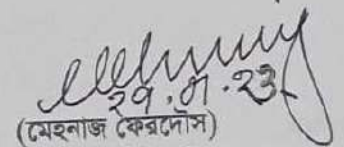 ২৭.০৭.২৩
(মেহনাজ ফেরদৌস)